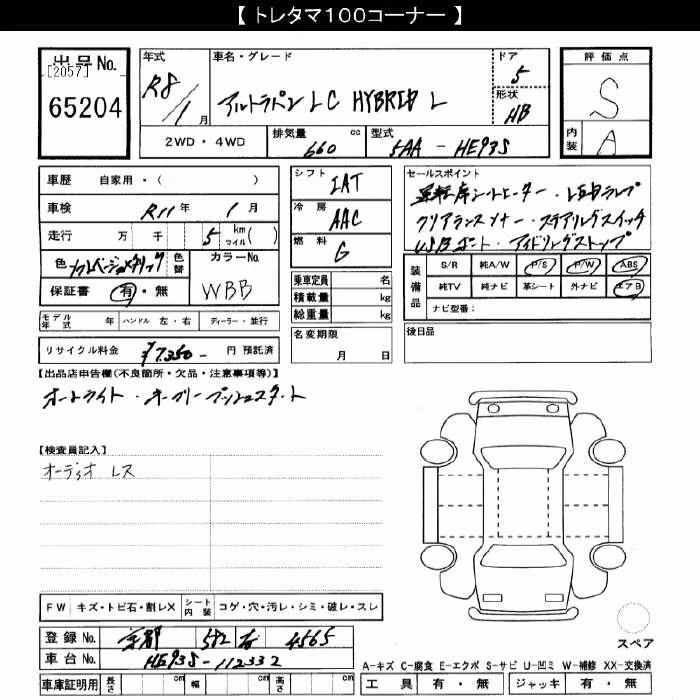 【 トレタマ100コーナー 】
出品No.
[2057]
65204
年式
R8/1月
車名・グレード
アルトラパンLC HYBRID L
ドア
5
形状
HB
2WD・4WD
排気量 660 cc
型式 5AA-HE93S
評価点
S
内装
A
車歴 自家用・( )
車検 R11年 1月
走行 万 千 5 kmマイル( )
色 色替
カラーNo.
WBB
保証書 有・無
モデル年式 年 ハンドル 左・右 ディーラー・並行
リサイクル料金 ¥7,350- 円 預託済
シフト IAT
冷房 AAC
燃料 G
乗車定員 名
積載量 kg
総重量 kg
名変期限
月 日
セールスポイント
運転席シートヒーター・LEDランプ
クリアランスソナー・ステアリングスイッチ
USBポート・アイドリングストップ
装備品
S/R 純A/W P/S P/W ABS
純TV 純ナビ 革シート 外ナビ エアB
ナビ型番:
後日品
【出品店申告欄(不良箇所・欠品・注意事項等)】
オートライト・キーフリープッシュスタート
【検査員記入】
オーディオ レス
FW キズ・トビ石・割レX シート内装 コゲ・穴・汚レ・シミ・破レ・スレ
登録No. 京都 582 4565
車台No. HE93S-112332
車庫証明用 長さ cm 幅 cm 高さ cm
スペア
A-キズ C-腐食 E-エクボ S-サビ U-凹ミ W-補修 XX-交換済
工具 有・無 ジャッキ 有・無